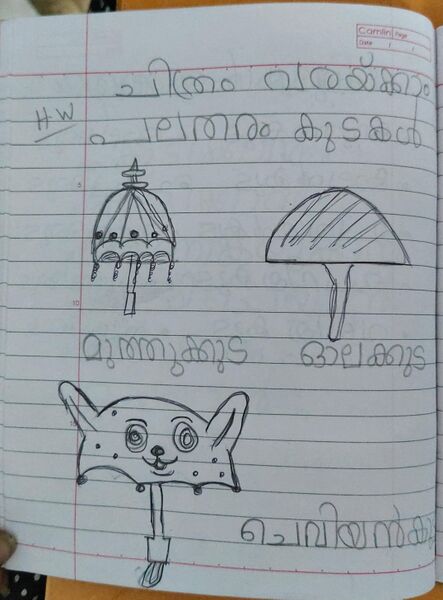 Camlin Page
Date / /
ചിത്രം വരയ്ക്കാം
H.W
പലതരം കുടകൾ
5
മുത്തുക്കുട ഓലക്കുട
10
ചെവിയൻകു